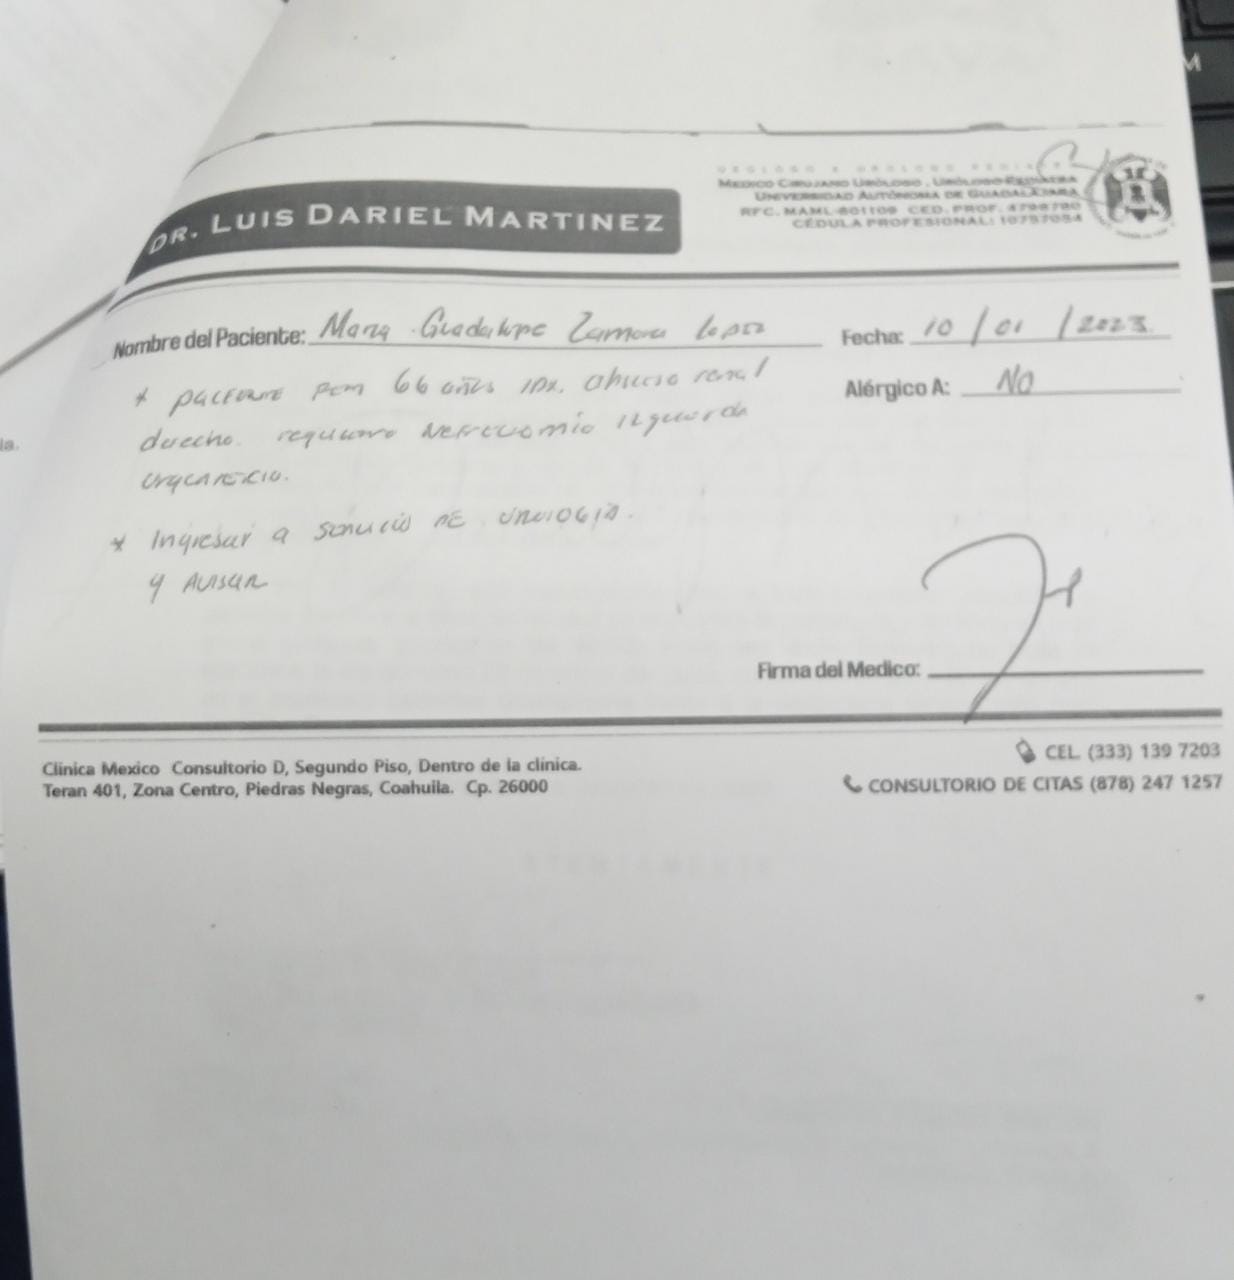 M
DR. LUIS DARIEL MARTINEZ
UROLOGO
MEDICO CIRUJANO UROLOGO, UROLOGO PEDIATRA
UNIVERSIDAD AUTÓNOMA DE GUADALAJARA
RFC. MAML-801109 CED. PROF. 4798780
CÉDULA PROFESIONAL: 10757054
Nombre del Paciente: Maria Guadalupe Zamora Lopez
Fecha: 10 / 01 / 2023
* paciente fem 66 años IDx. absceso renal
Alérgico A: No
derecho. requiere Nefrectomia izquierda
urgente
* Ingresar a servicio de urologia.
y AVISAR
Firma del Medico:
Clinica Mexico Consultorio D, Segundo Piso, Dentro de la clínica.
Teran 401, Zona Centro, Piedras Negras, Coahuila. Cp. 26000
CEL. (333) 139 7203
CONSULTORIO DE CITAS (878) 247 1257
la.